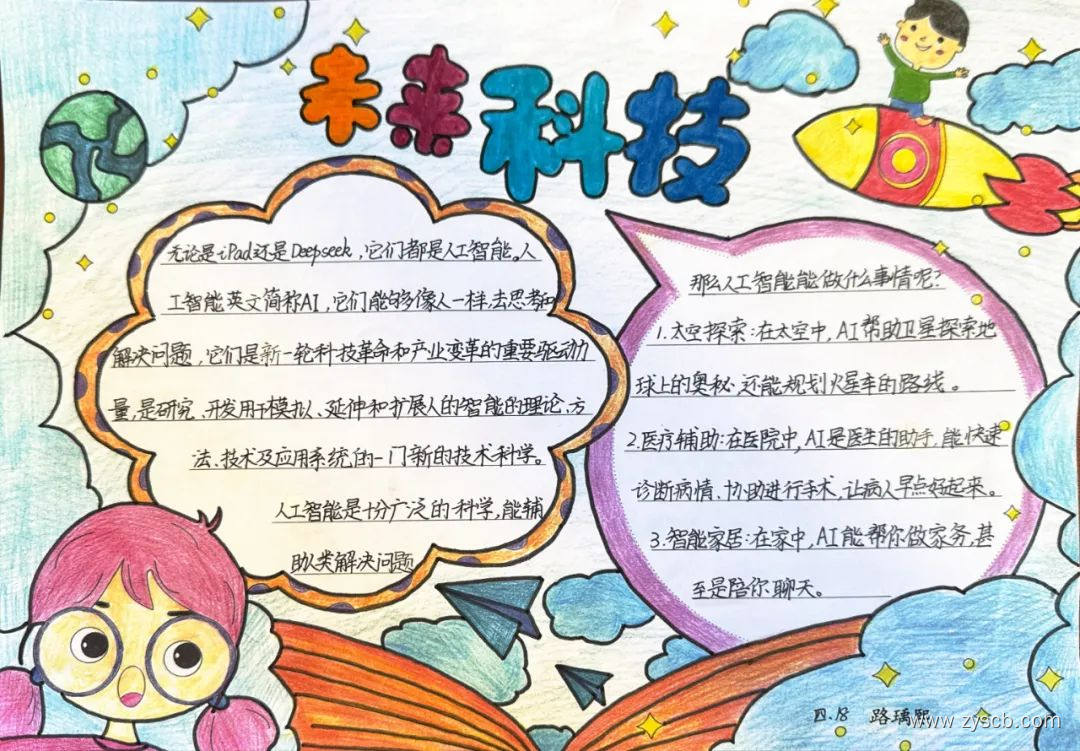 未来科技
无论是iPad还是Deepseek,它们都是人工智能。人
工智能英文简称AI,它们能够像人一样去思考和
解决问题,它们是新一轮科技革命和产业变革的重要驱动力
量,是研究、开发用于模拟、延伸和扩展人的智能的理论、方
法、技术及应用系统的一门新的技术科学。
人工智能是十分广泛的科学,能辅
助人类解决问题
那么人工智能能做什么事情呢?
1.太空探索:在太空中,AI帮助卫星探索地
球上的奥秘,还能规划火星车的路线。
2.医疗辅助:在医院中,AI是医生的助手,能快速
诊断病情、协助进行手术,让病人早点好起来。
3.智能家居:在家中,AI能帮你做家务,甚
至是陪你聊天。
四.18 路瑀熙
www.zyscb.com